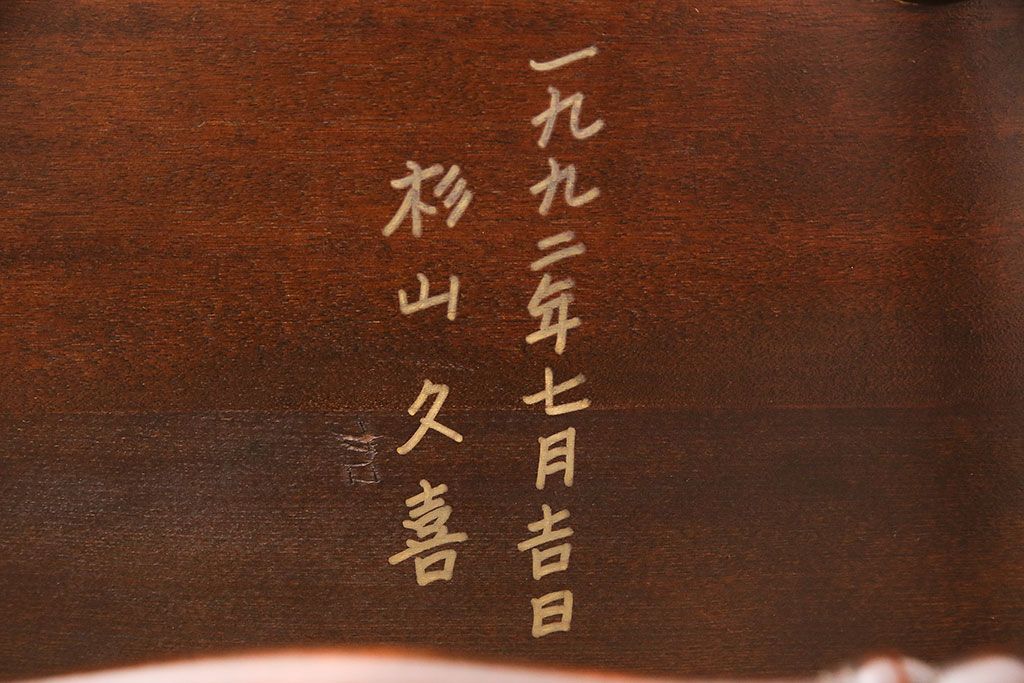 一九九二年七月吉日
杉山久喜